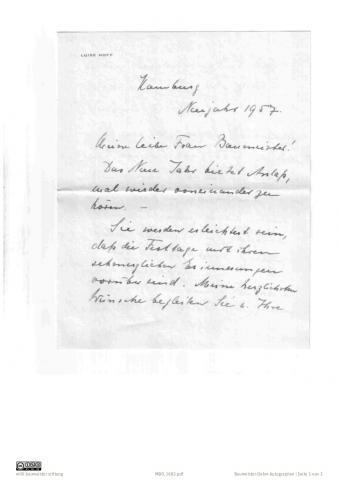 LUISE HOFF
Hamburg
Neujahr 1957.
Meine liebe Frau Baumeister!
Das Neue Jahr bietet Anlaß,
mal wieder voneinander zu
hören. —
Sie werden erleichtert sein,
daß die Festtage mit ihren
schmerzlichen Erinnerungen
vorüber sind. Meine herzlichsten
Wünsche begleiten Sie u. Ihre
willi baumeister stiftung
Baumeister-Dehn-Autographen | Seite 1 von 3